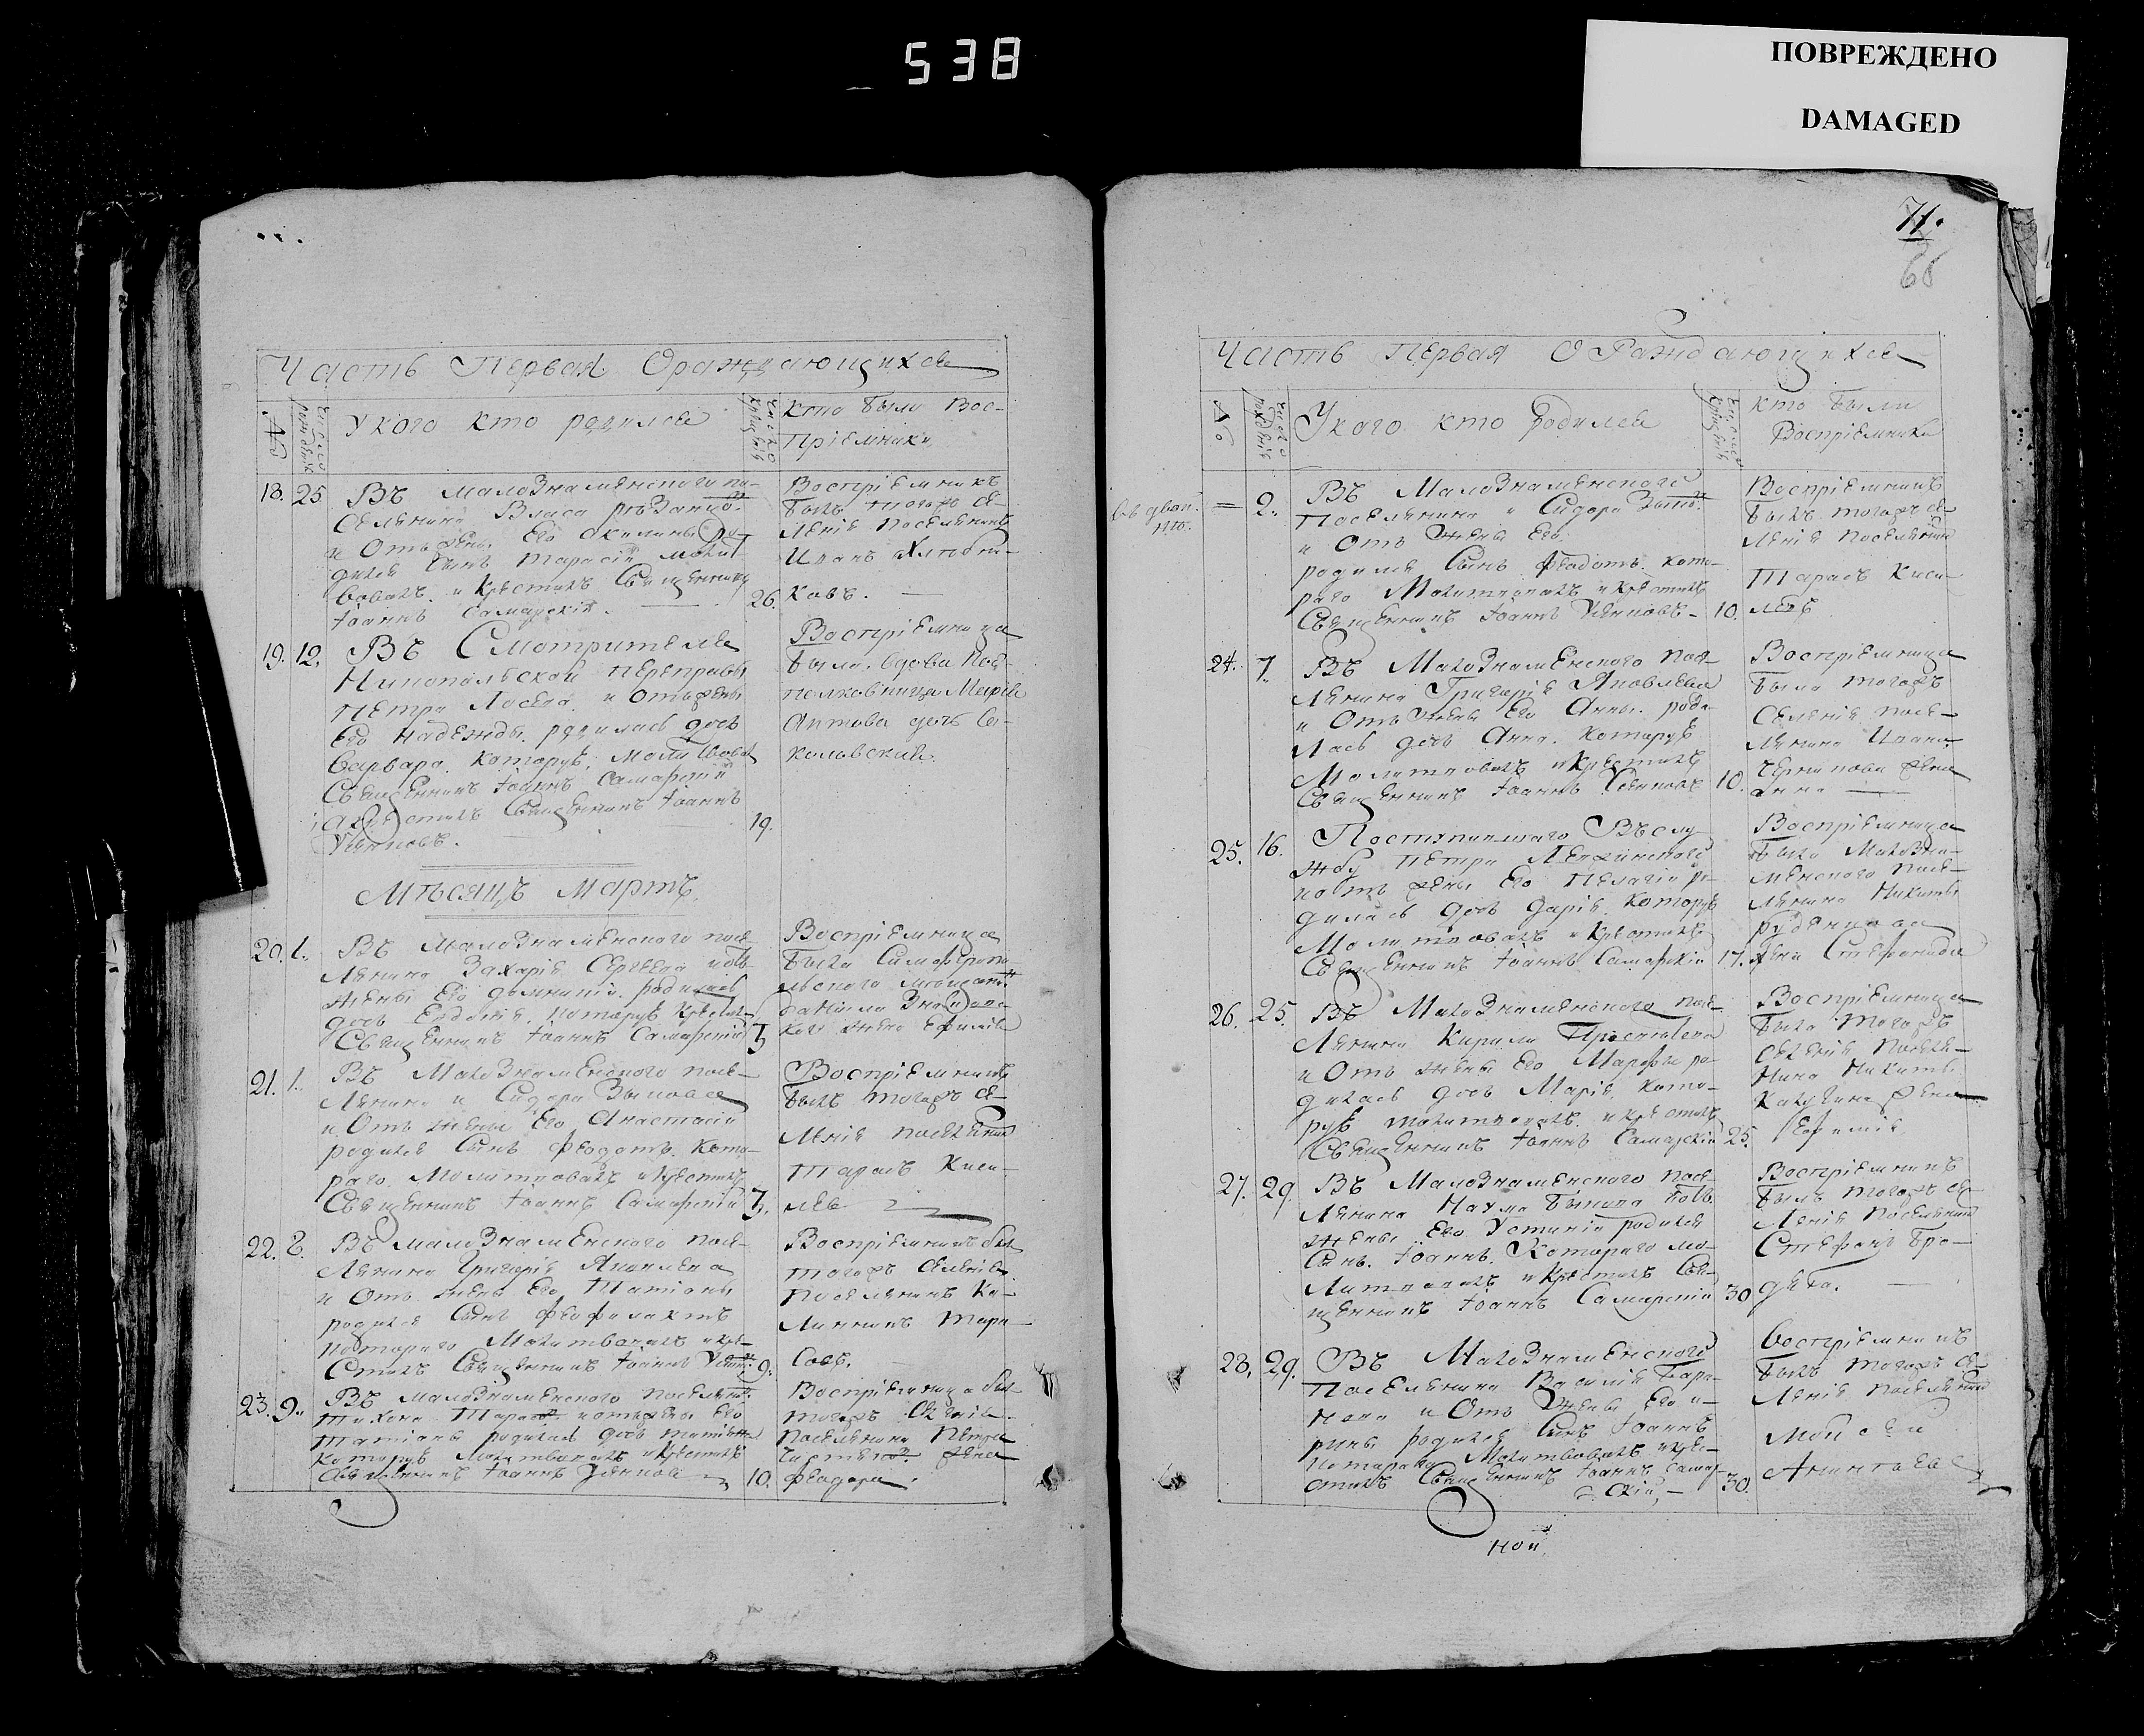 538
ПОВРЕЖДЕНО
DAMAGED
Часть Первая Оражда ющихсе
№
число рождение
У кого кто родилсе
число крещеніе
кто были Вос-
пріемники
18. 25
Въ малоЗнаменского по-
селянина Власа
и отъ жены Его Акилины ро-
дился сынъ Тарасій молит-
вовалъ и крестилъ Священникъ
Іоаннъ Самарскій.
26.
Воспріемникъ
былъ тогожъ се-
ленія поселянинъ
Иванъ
ковъ.
19. 12.
Въ Смотрителя
Никопольской переправы
Петра Лосева и отъ жены
Его Надежды родилась дочь
Варвара. которую молитвовалъ
Священникъ Іоаннъ Самарскій
а крестилъ Священникъ Іоаннъ
Устиновъ.
19.
Воспріемница
была вдова под-
полковница Марія
Антова дочь Со-
кольвская.
Мѣсяцъ Мартъ.
20. 1.
Въ малоЗнаменского посе-
лянина Захарія Сергеева и отъ
жены Его Домникіи родилась
дочь Евдокія, которую крестилъ
Священникъ Іоаннъ Самарскій
3
Воспріемница
была Симферопо-
льского мещани:
Даніила
кого жена Ефимія
21. 1.
Въ МалоЗнаменского посе-
лянина и Сидора Зыпова
и отъ жены Его Анастасіи
родился Сынъ Феодотъ. кото-
раго Молитвовалъ и крестилъ
Священникъ Іоаннъ Самарскій
3.
Воспріемникъ
былъ тогожъ се-
ленія поселянин
Тарасъ Кисе-
лев
22. 8.
Въ МалоЗнаменского посе-
лянина Григорія Яковлева
и отъ жены Его Татіаны
родился Сынъ Феофилактъ
котораго Молитвовалъ и кре-
стилъ Священникъ Іоаннъ Устин:
9.
Воспріемникъ был
тогожъ селенія
Поселянинъ Ка-
линникъ Тара-
совъ.
23. 9.
Въ малоЗнаменского поселяни:
Тихона Тарасо: и отъ жены Его
Татіаны родилась дочь Татіана
которую Молитвовалъ и крестилъ
Священникъ Іоаннъ Устинов
10.
Воспріемница был
тогожъ селенія
поселянина Петра
жена
Феодора.
71.
66
Часть первая О Раждающихсе
№
число рожденіе
У кого кто родилсе
число крещеніе
кто были
Воспріемники
въ двой-
не.
=
2.
Въ МалоЗнаменского
Поселянина и Сидора Зыпо:
и отъ жены Его
родился Сынъ Феодотъ. кото-
раго Молитвовалъ и крестилъ
Священникъ Іоаннъ Устиновъ
10.
Воспріемникъ
былъ тогожъ се-
ленія поселянин
Тарасъ Кисе-
левъ
24. 7.
Въ МалоЗнаменского посе-
лянина Григорія Яковлева
и отъ жены Его Анны. роди-
лась дочь Анна. которую
Молитвовалъ и крестилъ
Священникъ Іоаннъ Устиновъ
10.
Воспріемница
была тогожъ
селенія посе-
лянина Ивана
Черникова жена
Анна
25. 16.
Поступившаго Въ слу
жбу Петра
и отъ жены Его Пелагіи ро-
дилась дочь Дарія. которую
Молитвовалъ и крестилъ
Священникъ Іоаннъ Самарскій
17.
Воспріемница
была МалоЗна-
менского посе-
лянина Никиты
Руденкова
жена Стефанида
26. 25.
Въ МалоЗнаменского посе-
лянина Кирила
и отъ жены Его Марфы ро-
дилась дочь Марія, кото-
рую молитвовалъ и крестилъ
Священникъ Іоаннъ Самарскій
25.
Воспріемница
была тогожъ
селенія поселя-
нина Никиты
жена
Ефимія
27. 29.
Въ МалоЗнаменского посе-
лянина Наума Быкова и отъ
жены Его Устиніи родился
Сынъ. Іоаннъ. котораго мо-
литвовалъ и крестилъ Свя-
щенникъ Іоаннъ Самарскій
30
Воспріемникъ
былъ тогожъ се-
ленія поселянин
Стефанъ Бро-
28. 29.
Въ МалоЗнаменского
Поселянина Василія Бара-
нова и отъ жены Его и-
рины родился Сынъ Іоаннъ
котораго Молитвовалъ и кре-
стилъ Священникъ Іоаннъ Самар-
скій,
30.
Воспріемникъ
былъ тогожъ се-
ленія поселянин
Мойсей
ной